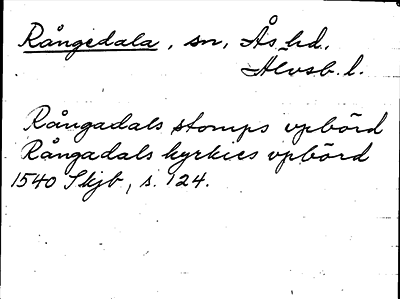 Rångedala, sn, Ås hd.
Älvsb. l.
Rångadals stomps vpbörd
Rångadals kyrkies vpbörd
1540 Skjb, s. 124.